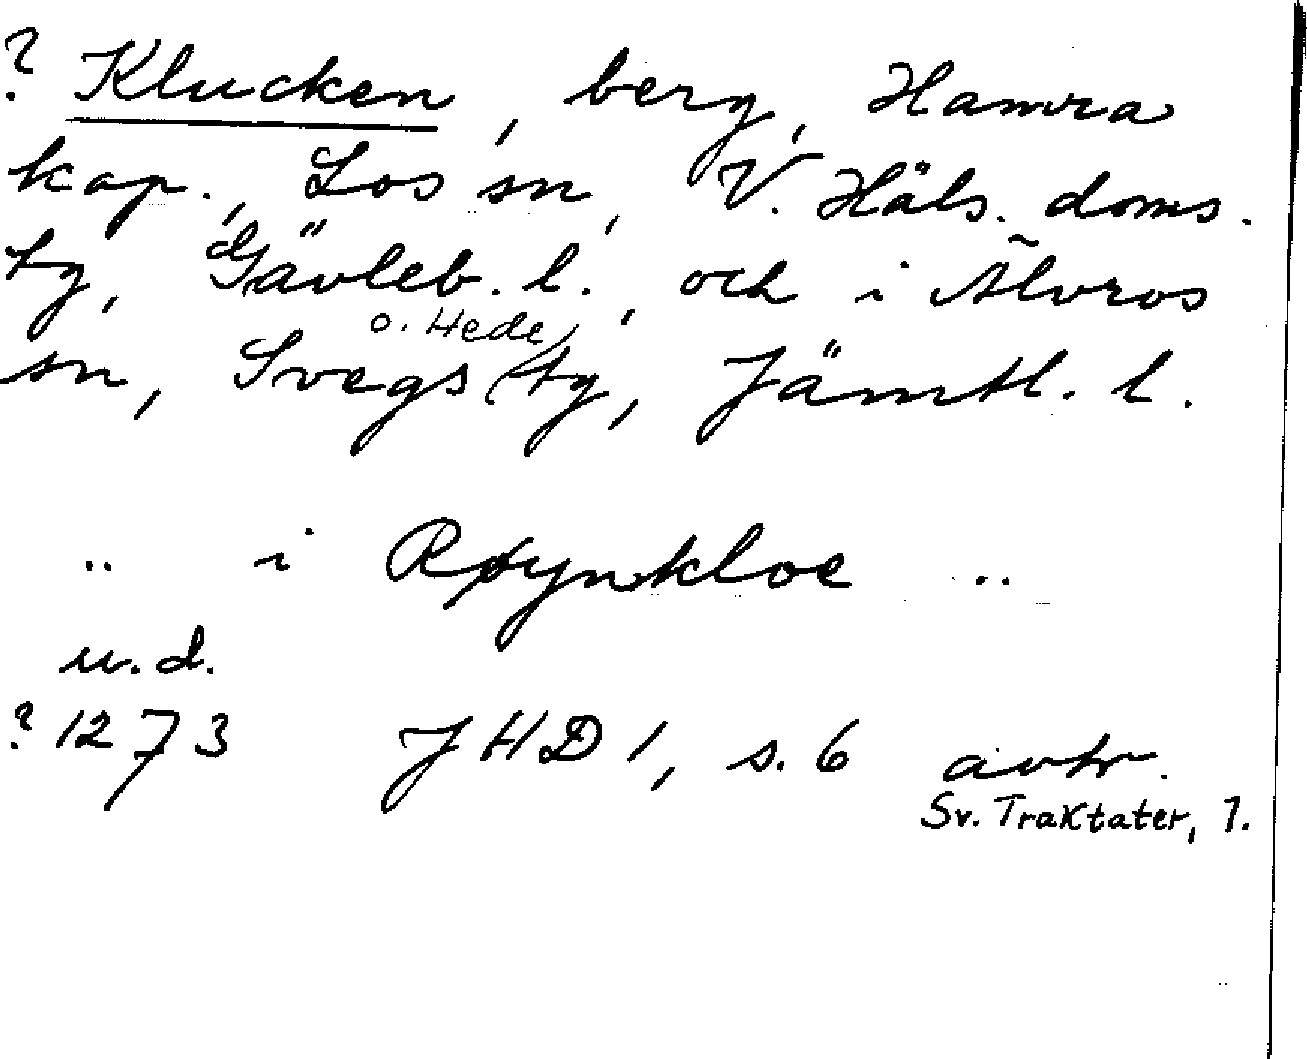 ? Klucken, berg, Hamra
kap., Los sn, V. Häls. doms.
tg, Gävleb. l., och i Älvros
sn, Svegs o. Hede tg, Jämtl. l.
.. i Røynkloe ..
u.d.
? 1273 JHD 1, s. 6 avtr.
Sv. Traktater, 1.